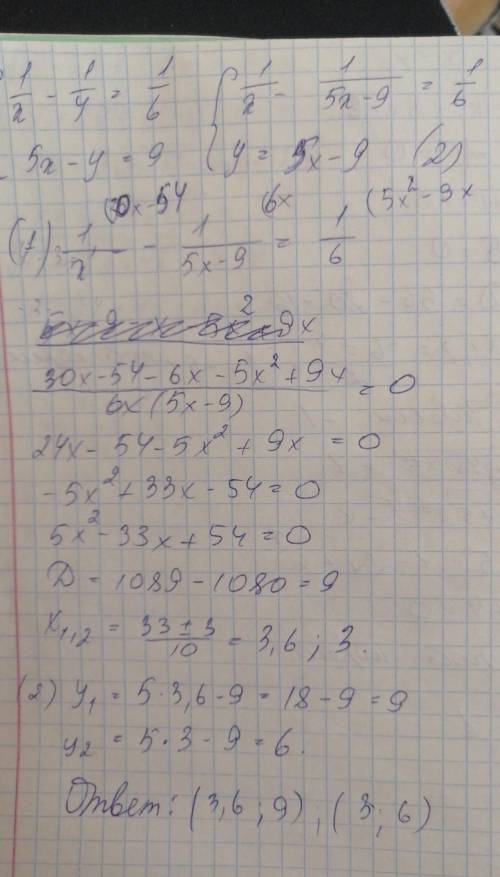 1/x - 1/y = 1/6 { 1/x - 1/(5x-9) = 1/6
5x - y = 9 y = 5x-9 (2)
(30x-54 (6x (5x² - 9x
(1) 1/x - 1/(5x-9) = 1/6
(30x-54-6x-5x²+9x)/(6x(5x-9)) = 0
24x - 54 - 5x² + 9x = 0
-5x² + 33x - 54 = 0
5x² - 33x + 54 = 0
D = 1089 - 1080 = 9
x₁,₂ = (33±3)/10 = 3,6 ; 3.
(2) y₁ = 5·3,6 - 9 = 18 - 9 = 9
y₂ = 5·3 - 9 = 6.
Ответ: (3,6 ; 9), (3; 6)